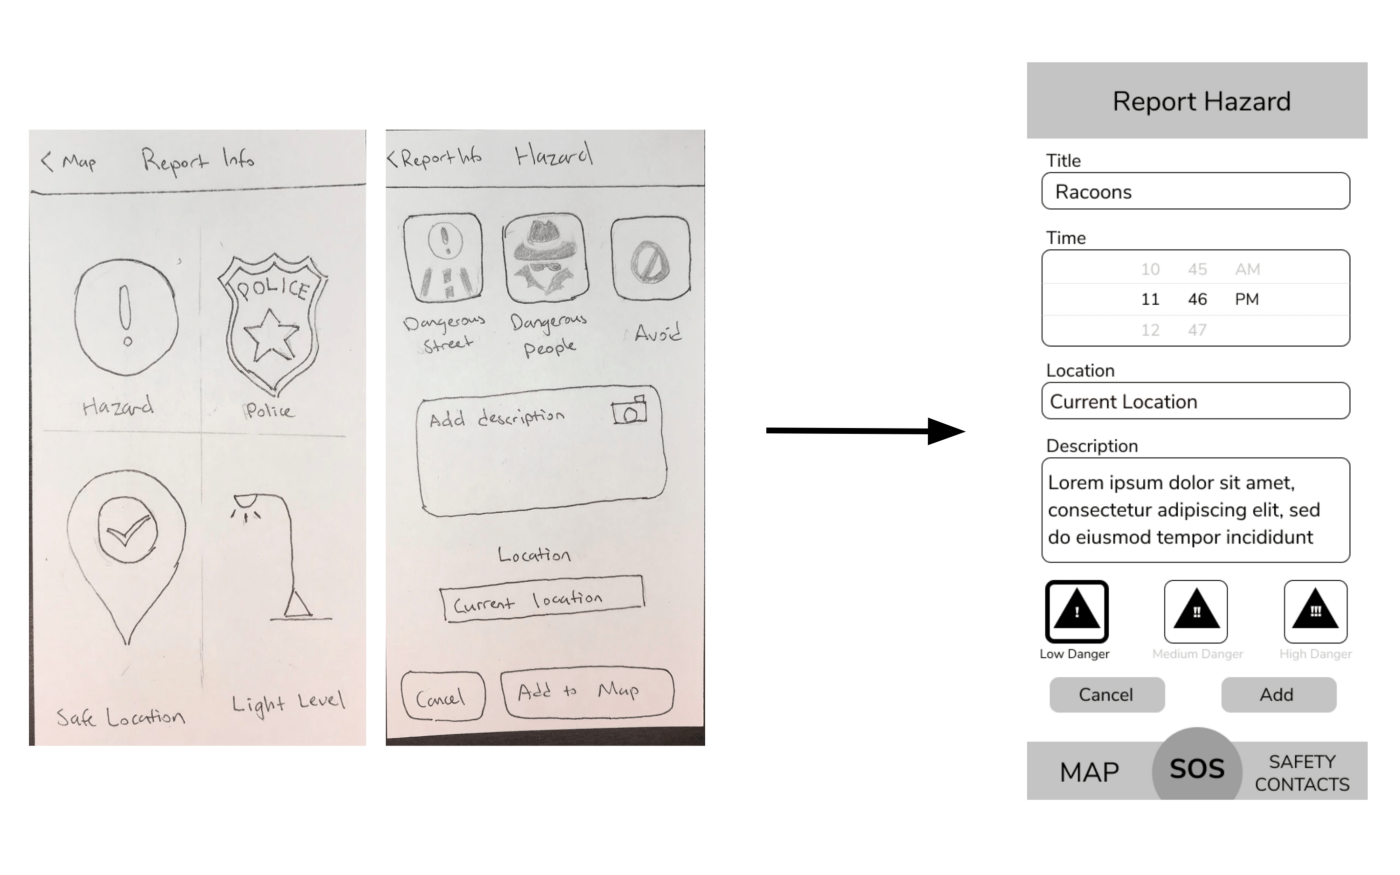 < Map Report Info
POLICE
Hazard
Police
Safe Location
Light Level
< Report Info Hazard
Dangerous
Street
Dangerous
People
Avoid
Add description
Location
Current location
Cancel
Add to Map
Report Hazard
Title
Racoons
Time
10 45 AM
11 46 PM
12 47
Location
Current Location
Description
Lorem ipsum dolor sit amet,
consectetur adipiscing elit, sed
do eiusmod tempor incididunt
!
!!
!!!
Low Danger
Medium Danger
High Danger
Cancel
Add
MAP
SOS
SAFETY
CONTACTS